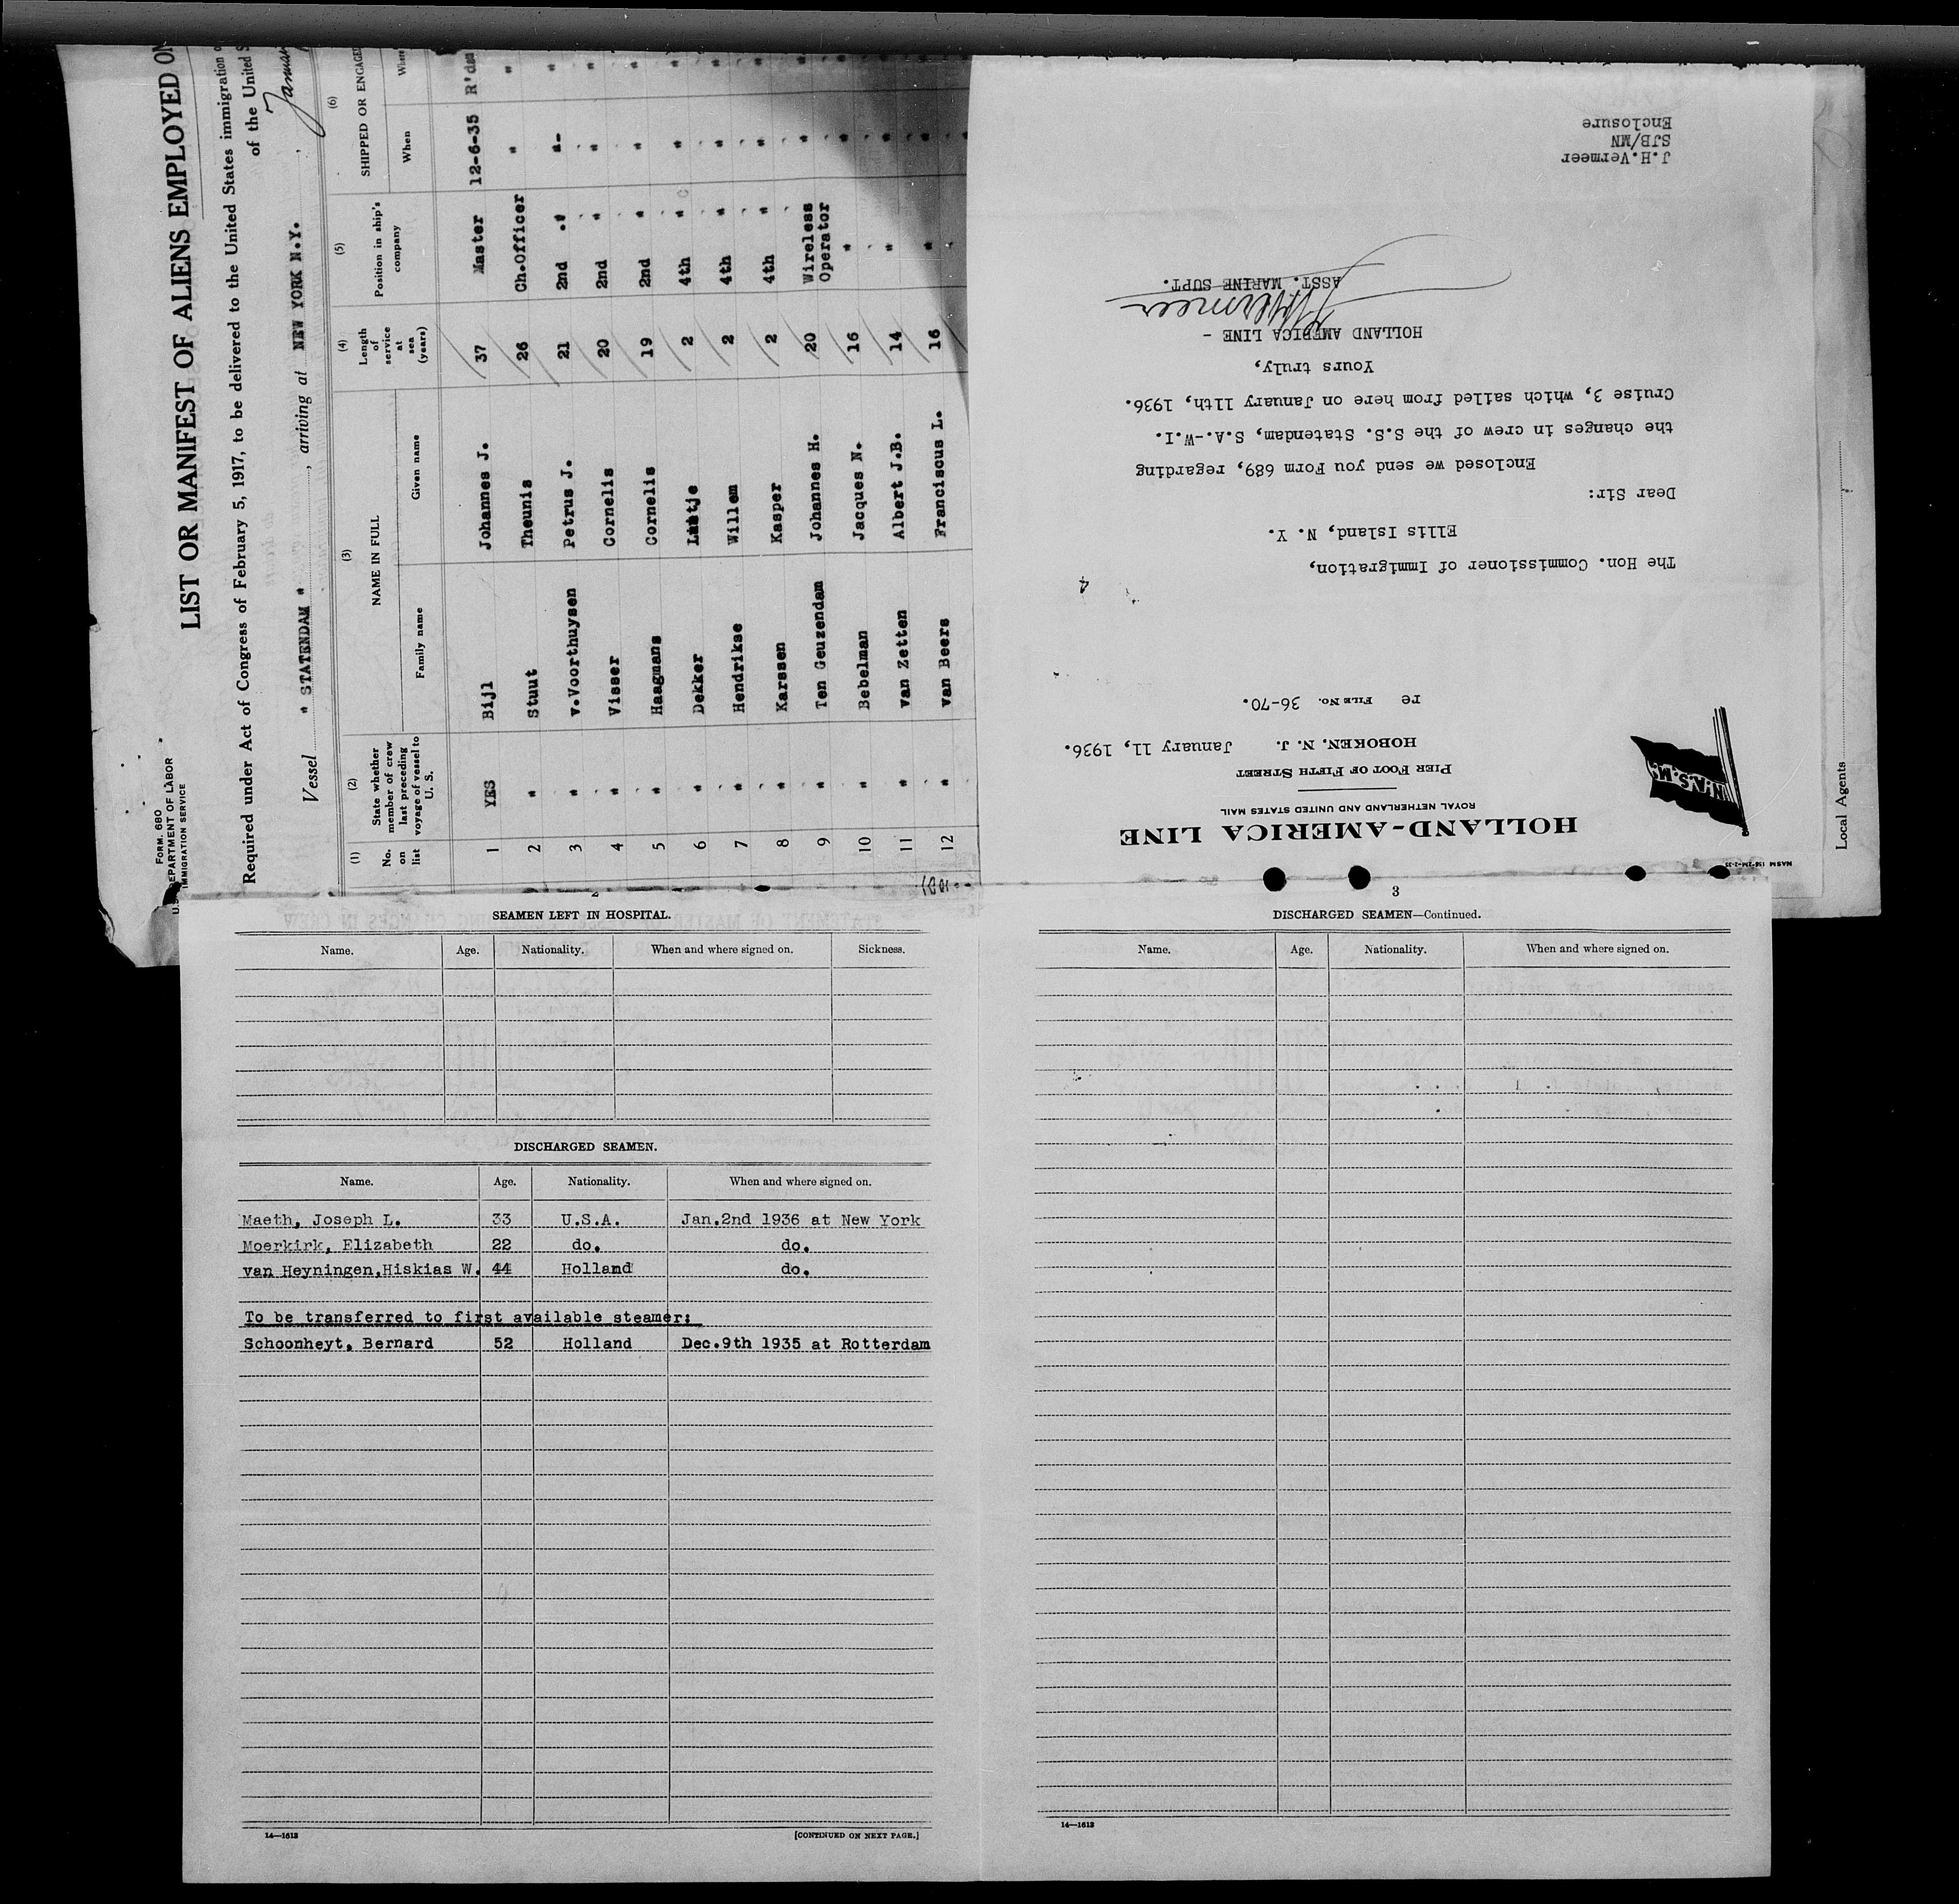 FORM. 680
U.S. DEPARTMENT OF LABOR
IMMIGRATION SERVICE
LIST OR MANIFEST OF ALIENS EMPLOYED ON
Required under Act of Congress of February 5, 1917, to be delivered to the United States immigration
of the United
Vessel " STATENDAM " , arriving at NEW YORK N.Y. , January
(1) (2) (3) (4) (5) (6)
No. on list
State whether member of crew last preceding voyage of vessel to U. S.
NAME IN FULL
Family name Given name
Length of service at sea (years)
Position in ship's company
SHIPPED OR ENGAGED
When Where
1 YES Bijl Johannes J. 37 Master 12-6-35 R'dam
2 " Stuut Theunis 26 Ch.Officer " "
3 " v.Voorthuysen Petrus J. 21 2nd " " "
4 " Visser Cornelis 20 2nd " " "
5 " Haagmans Cornelis 19 2nd " " "
6 " Dekker 2 4th " " "
7 " Hendrikse Willem 2 4th " " "
8 " Karssen Kasper 2 4th " " "
9 " Ten Geuzendam Johannes H. 20 Wireless Operator " "
10 " Bebelman Jacques N. 16 " " "
11 " van Zetten Albert J.B. 14 " " "
12 " van Beers Franciscus L. 16 " " "
NASM 136-2M-2-35
N.A.S.M.
HOLLAND-AMERICA LINE
ROYAL NETHERLAND AND UNITED STATES MAIL
PIER FOOT OF FIFTH STREET
HOBOKEN, N. J. January 11, 1936.
re FILE NO. 36-70.
4
The Hon. Commissioner of Immigration,
Ellis Island, N. Y.
Dear Sir:
Enclosed we send you Form 689, regarding
the changes in crew of the S.S. Statendam, S.A.-W.I.
Cruise 3, which sailed from here on January 11th, 1936.
Yours truly,
HOLLAND AMERICA LINE -
JHVermeer
ASST. MARINE SUPT.
J.H.Vermeer
SJB/MN
Enclosure
Local Agents
2
SEAMEN LEFT IN HOSPITAL.
Name. Age. Nationality. When and where signed on. Sickness.
DISCHARGED SEAMEN.
Name. Age. Nationality. When and where signed on.
Maeth, Joseph L. 33 U.S.A. Jan.2nd 1936 at New York
Moerkirk, Elizabeth 22 do. do.
van Heyningen,Hiskias W. 44 Holland do.
To be transferred to first available steamer:
Schoonheyt, Bernard 52 Holland Dec.9th 1935 at Rotterdam
14—1613 [CONTINUED ON NEXT PAGE.]
3
DISCHARGED SEAMEN—Continued.
Name. Age. Nationality. When and where signed on.
14—1613